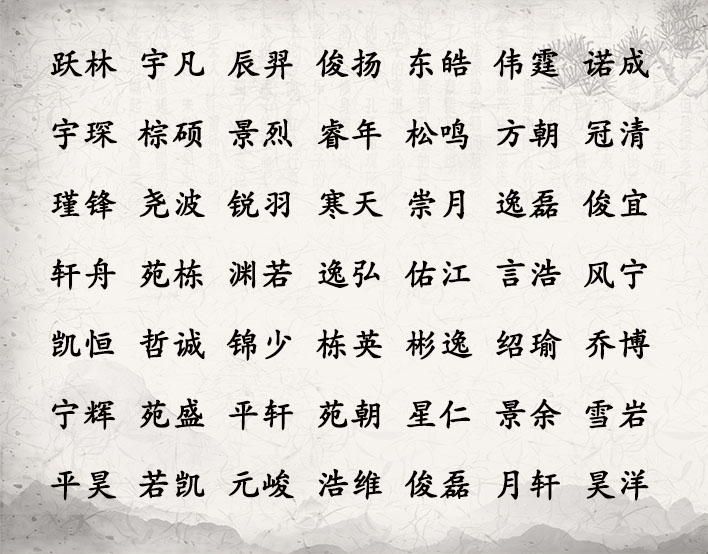 跃林 宇凡 辰羿 俊扬 东皓 伟霆 诺成
宇琛 棕硕 景烈 睿年 松鸣 方朝 冠清
瑾锋 尧波 锐羽 寒天 崇月 逸磊 俊宜
轩舟 苑栋 渊若 逸弘 佑江 言浩 风宁
凯恒 哲诚 锦少 栋英 彬逸 绍瑜 乔博
宁辉 苑盛 平轩 苑朝 星仁 景余 雪岩
平昊 若凯 元峻 浩维 俊磊 月轩 昊洋